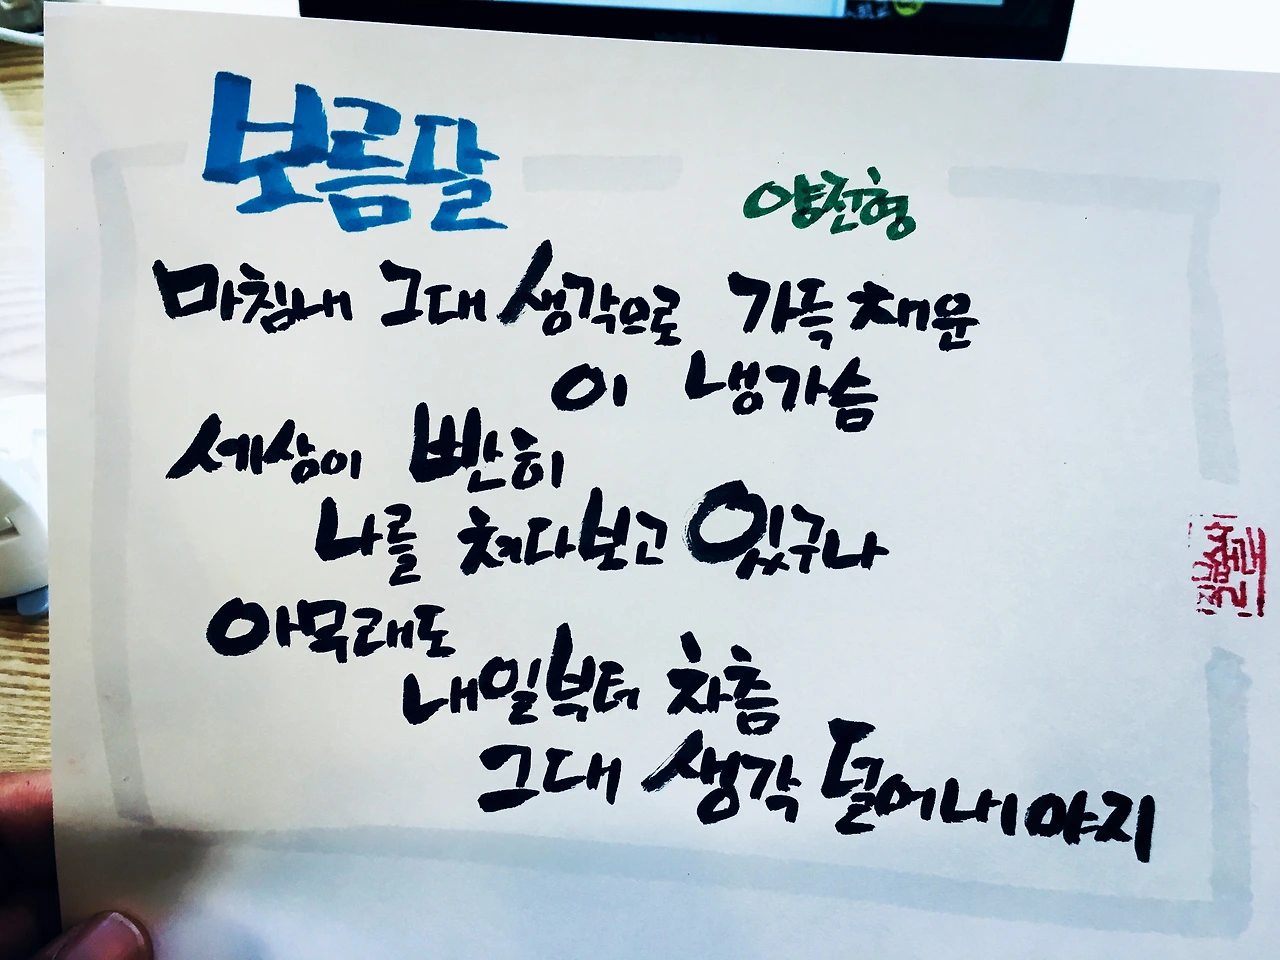 보름달
양전형
마침내 그대 생각으로 가득 채운
이 냉가슴
세상이 빤히
나를 쳐다보고 있구나
아무래도
내일부터 차츰
그대 생각 덜어내야지